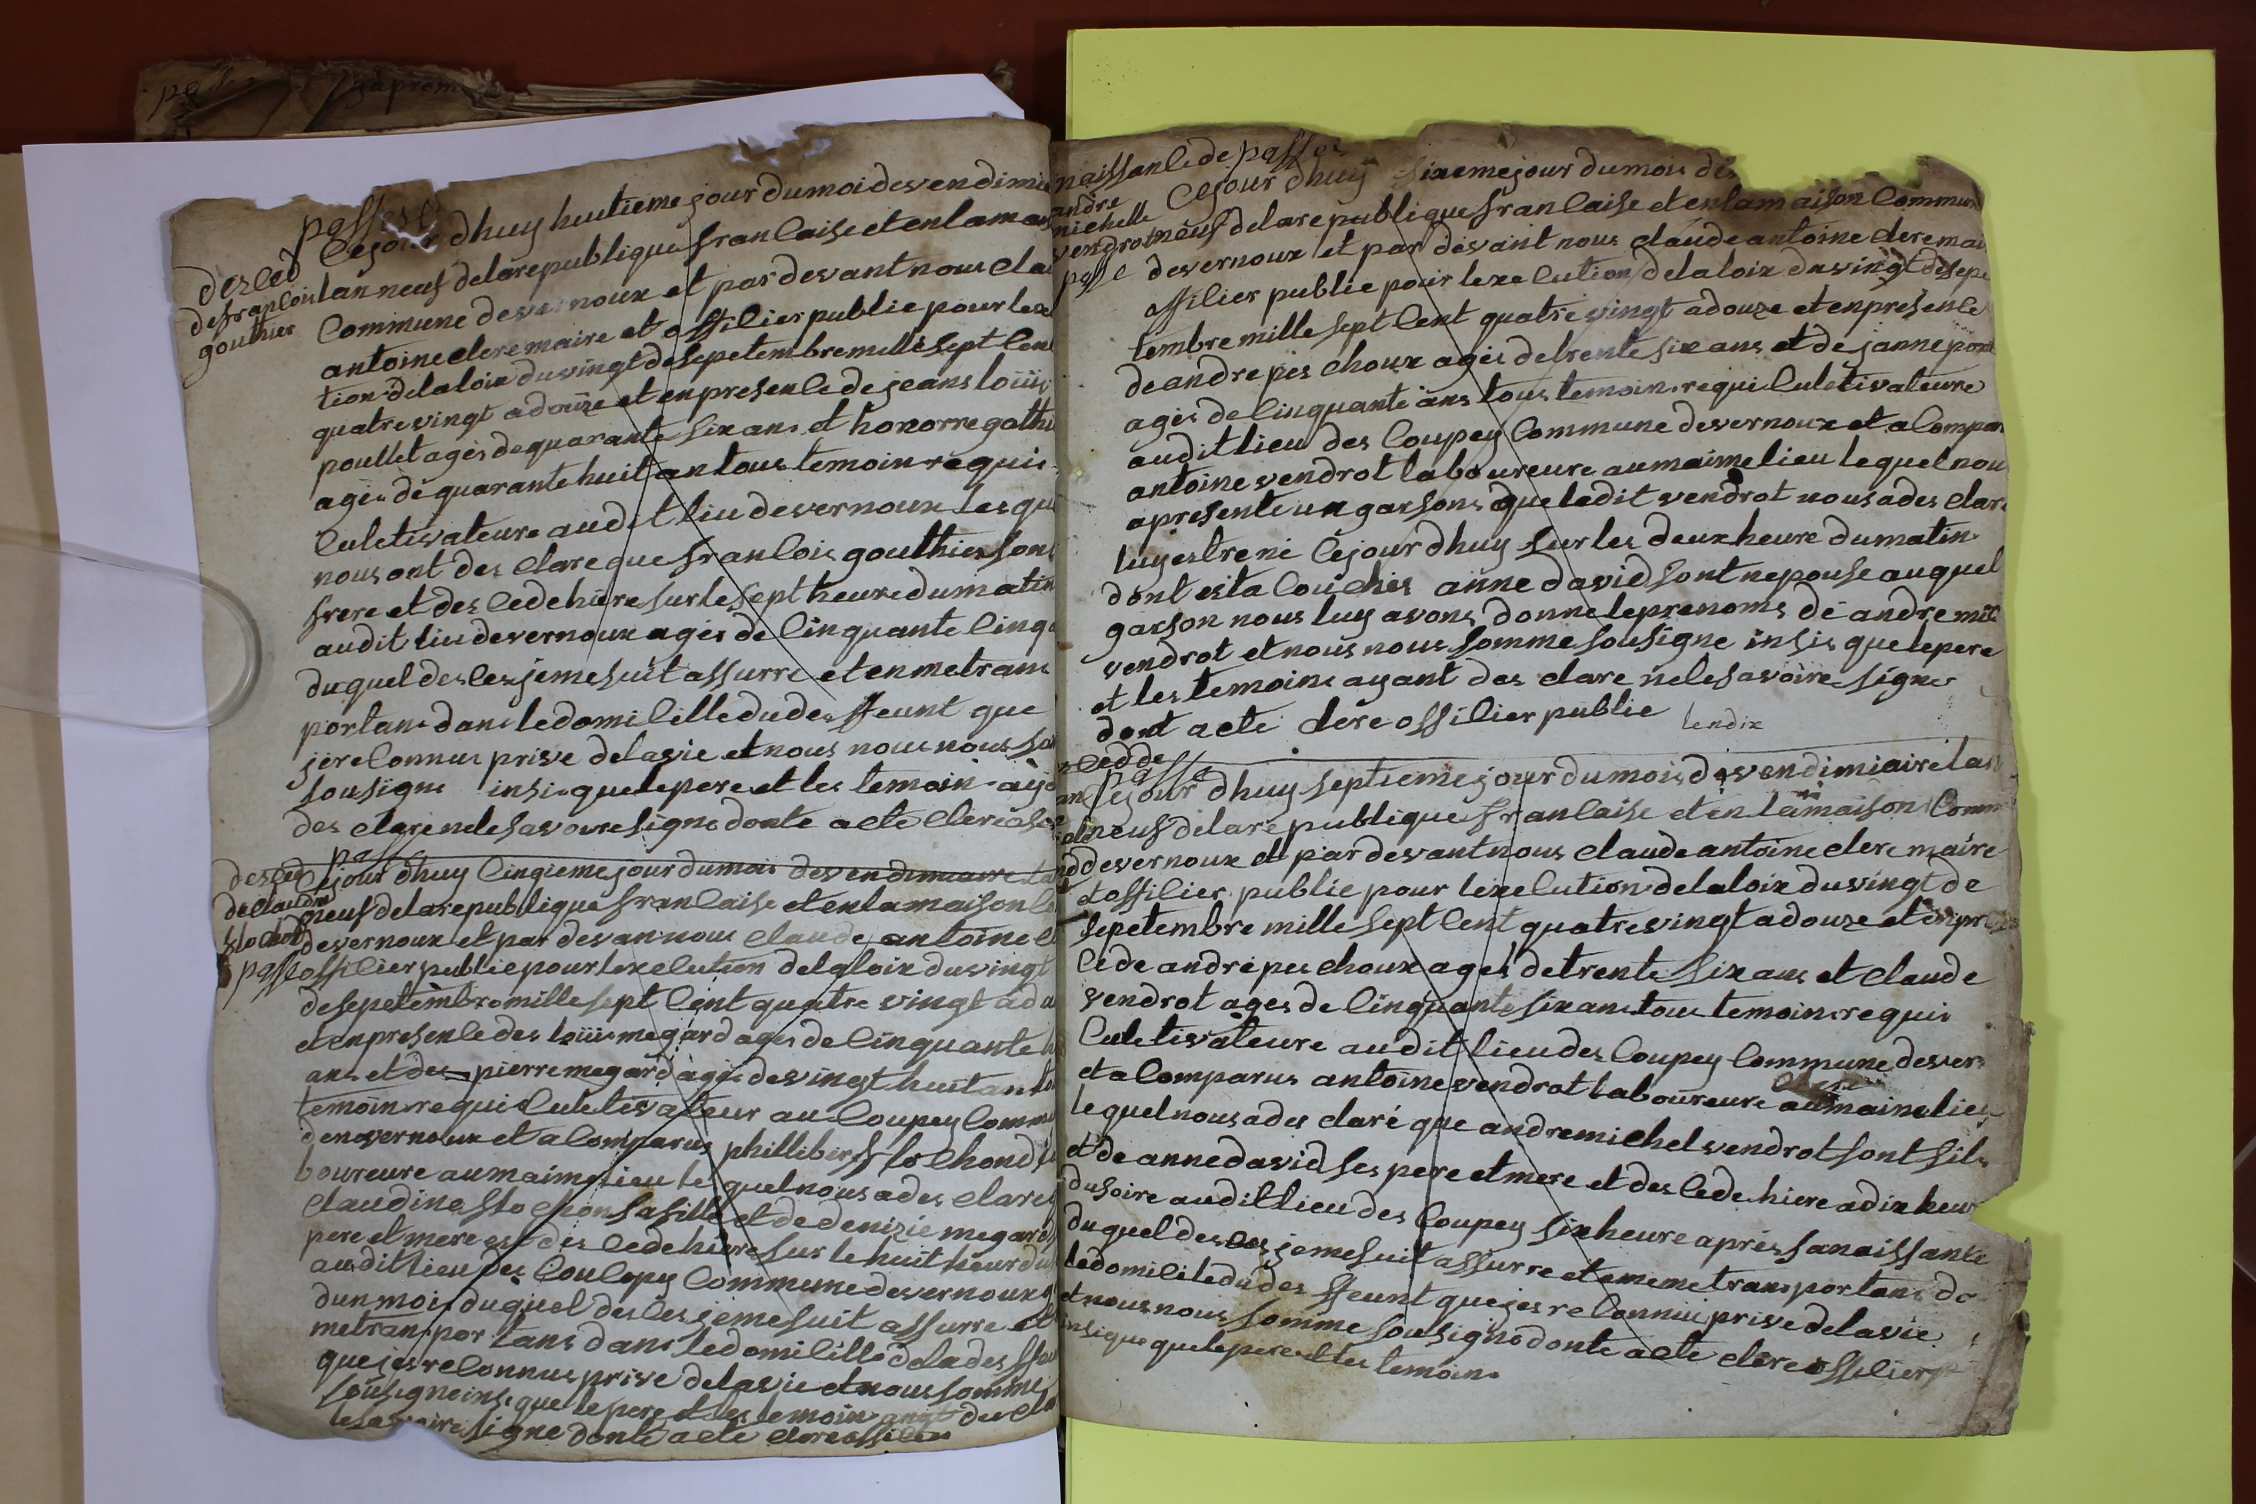 passe
Cejour dhuy huitieme jour dumoi desvendimi
desced
defrancois
gouthier
lan neuf delarepublique francaise et enlamai
Commune devernoux et par devant nous cla
antoine clere maire et officier publie pour lexe
tion delaloix duvingt desepetembre mille sept Cent
quatrevingt adouze et enpresence de jeans loüis
poullet agès dequarante six ans et honorre gothi
agès de quarante huit an tous temoin requis
Culetivateure audit lieu devernoux lesqu
nous ont des clare que francois gouthier sont
frere et des cede hiere sur le sept heure dumatin
audit lieu devernoux agès de Cinquante Cinq
duquel desces jemesuit assurre et en metrans
portans dans ledomicille dudes ffeunt que
jere Connus prive delavie et nous nous nous som
sousigne insi que lepere et les temoin ayo
des clare nelesavoire signe donte acte clere offi
passe
desced
declaudine
flochon
passe
Cejour dhuy Cingieme jour dumois desvendimiaire la
neuf delarepublique francaise et enlamaison Co
devernoux et par devan nous claude antoine cl
officier publie pour lexecution delaloix duvingt
desepetembre mille sept Cent quatre vingt ado
et enpresence des loüis megard ages de Cinquante h
ans et des pierre megard àgès de vingt huit an to
temoin requi Culetivateur au Coupey Commu
devernoux et a Comparus phillibert flochond la
boureure au maime lieu lequel nous a des clares
claudine flochon sa fille et de denizie megard s
pere et mere est des cede hiere sur le huit heur du
audit lieu des Coulepy Commune devernoux a
dun mois duquel desces jemesuit assurre et
metransportans dans ledomicille dela des ffeu
que jes reconnus prive delavie et nous somme
sousigne insi que lepere et les temoin ayat des cla
lesavoire signe donte acte clere officier
naissance de passe
andre
michelle
vendrot
passe
Cejour dhuy sixeme jour dumois de
neuf delarepublique francaise et enlamaison Commun
devernoux et par devant nous claude antoine clere mai
officier publie pour lexecution delaloix duvingt desepe
tembre mille sept Cent quatre vingt adouze et enpresence
de andre pes choux agès detrente six ans et de janne pont
agès de Cinquante ans tous temoin requi Culetivateure
audit lieu des Coupey Commune devernoux et a Compar
antoine vendrot laboureure aumaime lieu lequel nou
apresente un garsons que ledit vendrot nous a des clare
luy estre né Cejour dhuy sur les deux heure dumatin
dont esta Couchès anne david sont nepouse auquel
garson nous luy avons donne leprenoms de andre mic
vendrot et nous nous somme sousigne insis que lepere
et les temoins ayant des clare nelesavoire signe
dont acte clere officier publie
lendix
passe
Cejour dhuy septieme jour dumois desvendimiaire lan
neuf delare publique francaise et en lamaison Comm
devernoux et par devant nous claude antoine clere maire
et officier publie pour lexecution delaloix duvingt de
sepetembre mille sept Cent quatrevingt adouze et enpre
Cede andre pes choux agès detrente six ans et claude
vendrot ages de Cinquante six ans tous temoin requi
Culetivateure audit lieu des Coupey Commune desver
et a Comparus antoine vendrot laboureure aumaime lieu
lequel nous a des claré que andre michel vendrot sont fils
et de anne david ses pere et mere et des Cede hiere a dix heur
dusoire audit lieu des Coupey six heure aprés sanaissance
duquel desces jemesuit assurre et ememetransportans da
ledomicile dudes ffeunt que jes reconnus prive delavie
et nous nous somme sousigne donte acte clere officier p
insi que quelepere et les temoin